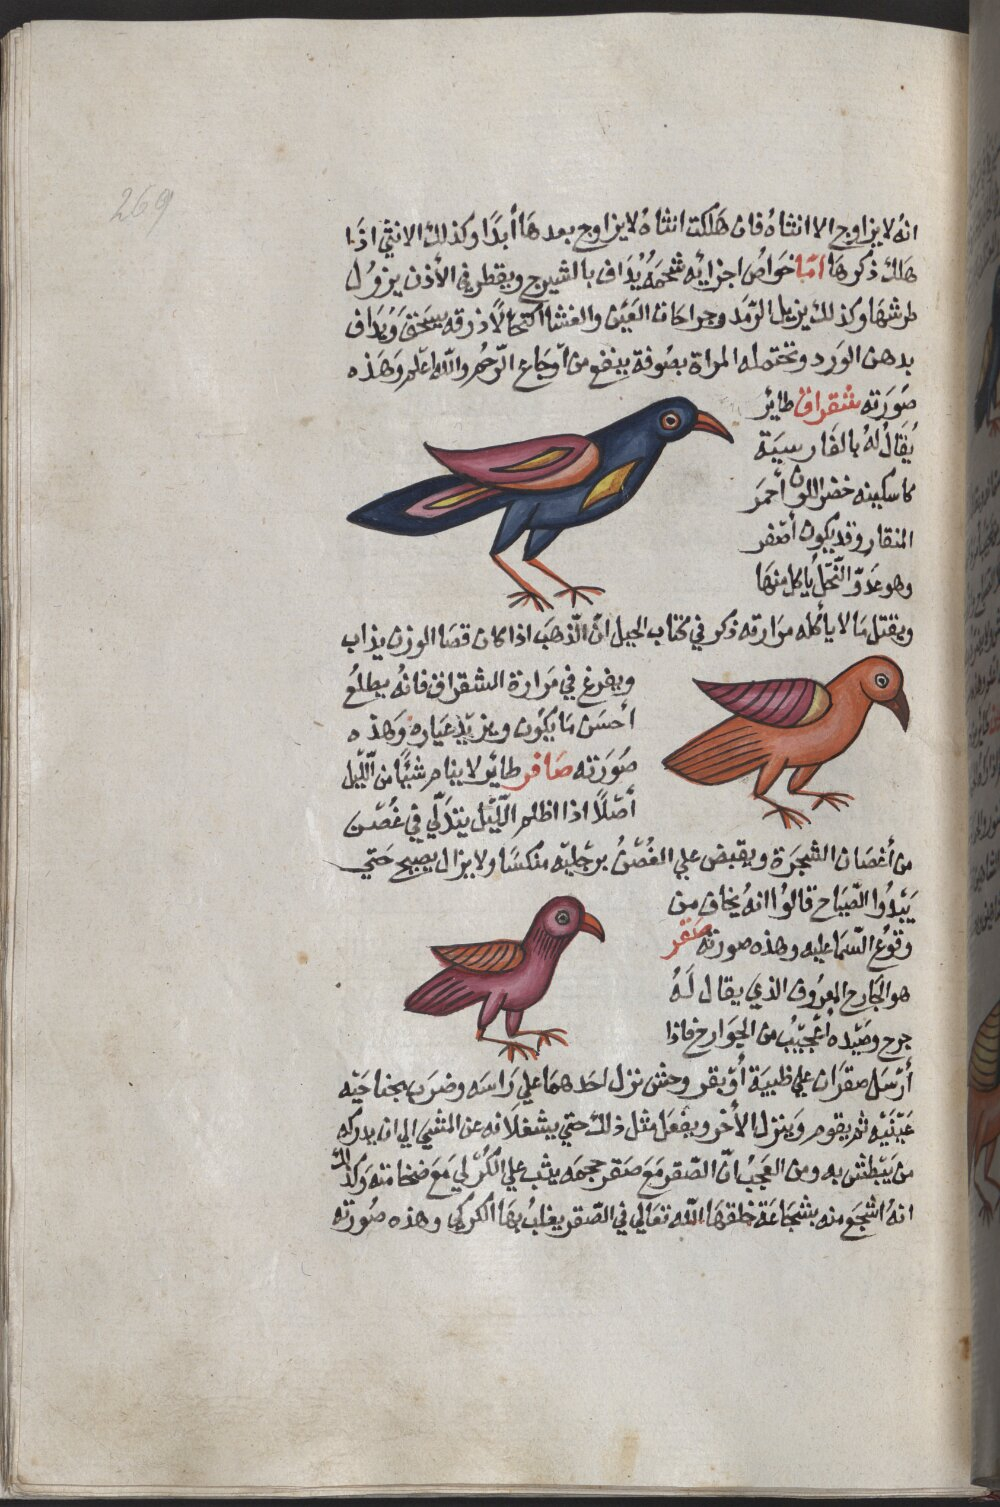 269
انه لا يزاوج الا انثاه فان هلكت انثاه لا يزاوج بعدها أبدا وكذلك الانثي اذا
هلك ذكرها اما خواص اجزايه شحمه يداف بالشيرج ويقطر في الأذن يزول
طرشها وكذلك يزيل الرمد وجراحات العين والغشا اكتحالا ذرقه يسحق ويداف
بدهن الورد وتحتمله المراة بصوفة ينفع من أوجاع الرحم والله اعلم وهذه
صورته شقراق طاير
يقال له بالفارسية
كاسكينه خضر اللون أحمر
المنقار وقد يكون أصفر
وهو عدو النحل يأكل منها
ويقتل ما لا يأكله مرارته ذكر في كتاب الحيل ان الذهب اذا كان قصا الوزن يذاب
ويفرغ في مرارة الشقراق فانه يطلع
أحسن ما يكون ويزيد عياره وهذه
صورته صافر طاير لا ينام شيئا من الليل
أصلا اذا اظلم الليل يتدلي في غصن
من أغصان الشجرة ويقبض علي الغصن برجليه منكسا ولا يزال يصيح حتي
يبدوا الصباح قالوا انه يخاف من
وقوع السما عليه وهذه صورته صقر
هو الجارح المعروف الذي يقال له
جرح وصيده أعجب من الجوارح فاذا
أرسل صقران علي ظبية أو بقر وحش نزل احدهما علي راسه وضرب بجناحيه
عينيه ثم يقوم وينزل الأخر ويفعل مثل ذلك حتي يشغلانه عن المشي الي ان يدركه
من يبطش به ومن العجب ان الصقر مع صغر حجمه يثب علي الكركي مع ضخامته وكذلك
انه اشجع منه بشجاعة خلقها الله تعالي في الصقر يغلب بها الكركي وهذه صورته